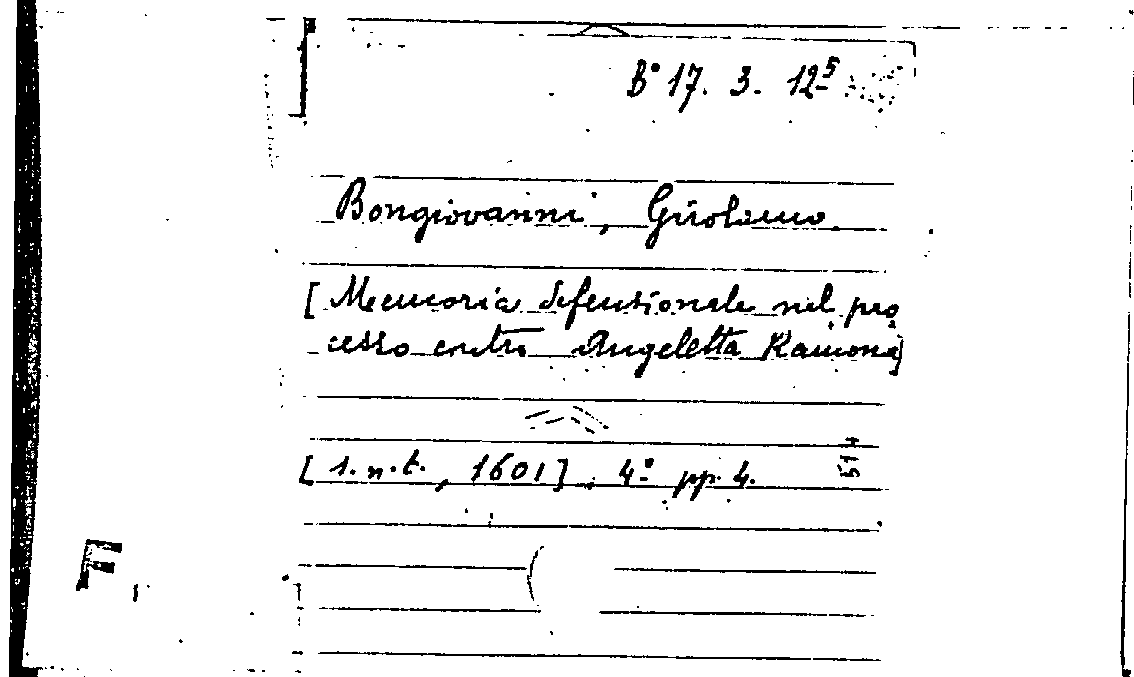 B° 17. 3. 12⁵
Bongiovanni, Girolamo.
[Memoria defensionale nel pro
cesso contro Angeletta Ramona]
[s.n.t., 1601]. 4° pp. 4.
514
F